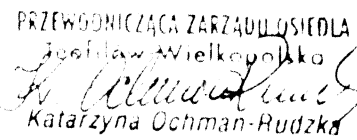 PRZEWODNICZĄCA ZARZĄDU OSIEDLA
Wielkopolska
Katarzyna Ochman-Rudzka